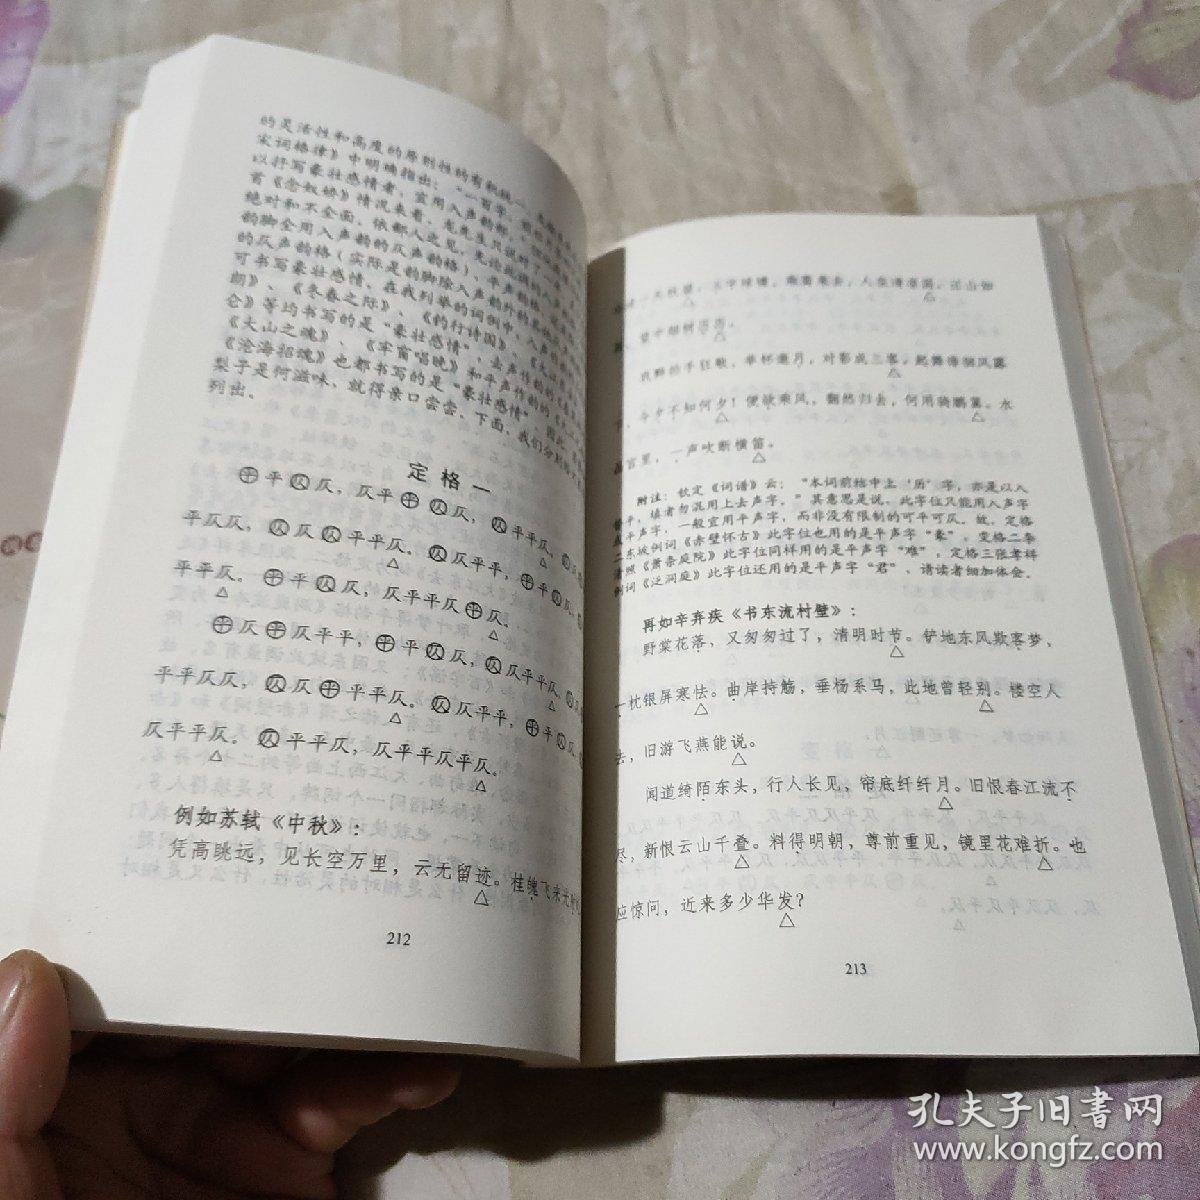 的灵活性和高度的原则性的有机统一。
宋词格律》中明确指出：“一百字，
以抒写豪壮感情者，宜用入声韵部。
首《念奴娇》情况来看，龙先生只说对了一
绝对和不全面。依鄙人之见，无论此调的入声
韵脚全用入声韵的仄声韵格）、平声韵
的仄声韵格（实际是韵脚除入声韵外的其他
可书写豪壮感情。在我列举的词例中，入声作的
朗》、《冬春之际》、《钓行诗国》、
仑》等均书写的是“豪壮感情”，去声作的
《大山之魂》、《牢窗唱晚》和平声作的的
《沧海招魂》也都书写的是“豪壮感情”。因此，
梨子是何滋味，就得亲口尝尝。下面，我们分别
列出。
定格一
㊉平仄仄，仄平㊉仄仄，仄平平仄。
平仄仄，仄仄平平仄。仄仄平平，㊉平仄仄，
平平仄。㊉平仄仄，仄平平仄㊉仄。
㊉仄㊉仄平平，㊉平仄仄，仄仄平平仄。
平平仄仄，仄仄㊉平平仄。仄仄平平，㊉平仄仄，
仄平平仄。仄平平仄，仄平平仄平仄。
例如苏轼《中秋》：
凭高眺远，见长空万里，云无留迹。桂魄飞来光射
212
处，冷浸一天秋碧。玉宇琼楼，乘鸾来去，人在清凉国。江山如
画，望中烟树历历。
我醉拍手狂歌，举杯邀月，对影成三客。起舞徘徊风露
下，今夕不知何夕！便欲乘风，翻然归去，何用骑鹏翼。水
晶宫里，一声吹断横笛。
附注：钦定《词谱》云：“本词前结中上‘历’字，亦是以入
替平，填者勿混用上去声字。”其意思是说，此字位只能用入声字
或平声字，一般宜用平声字，而非没有限制的可平可仄。故，定格
二东坡例词《赤壁怀古》此字位也用的是平声字“豪”，变格二李
清照《萧条庭院》此字位同样用的是平声字“难”，定格三张孝祥
例词《泛洞庭》此字位还用的是平声字“君”，请读者细加体会。
再如辛弃疾《书东流村壁》：
野棠花落，又匆匆过了，清明时节。铲地东风欺客梦，
一枕银屏寒怯。曲岸持觞，垂杨系马，此地曾轻别。楼空人
去，旧游飞燕能说。
闻道绮陌东头，行人长见，帘底纤纤月。旧恨春江流不
尽，新恨云山千叠。料得明朝，尊前重见，镜里花难折。也
应惊问，近来多少华发？
213
孔夫子旧书网
www.kongfz.com